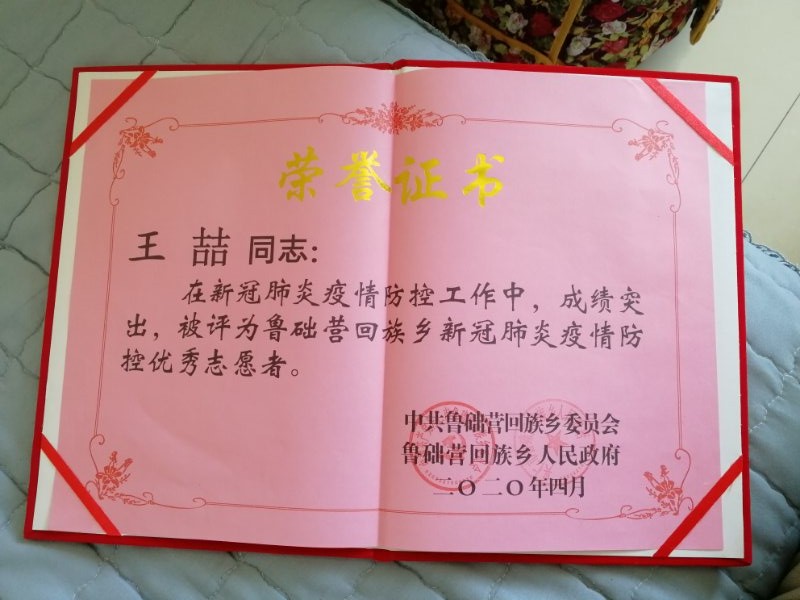 荣誉证书
王喆同志：
在新冠肺炎疫情防控工作中，成绩突
出，被评为鲁础营回族乡新冠肺炎疫情防
控优秀志愿者。
中共鲁础营回族乡委员会
鲁础营回族乡人民政府
二〇二〇年四月